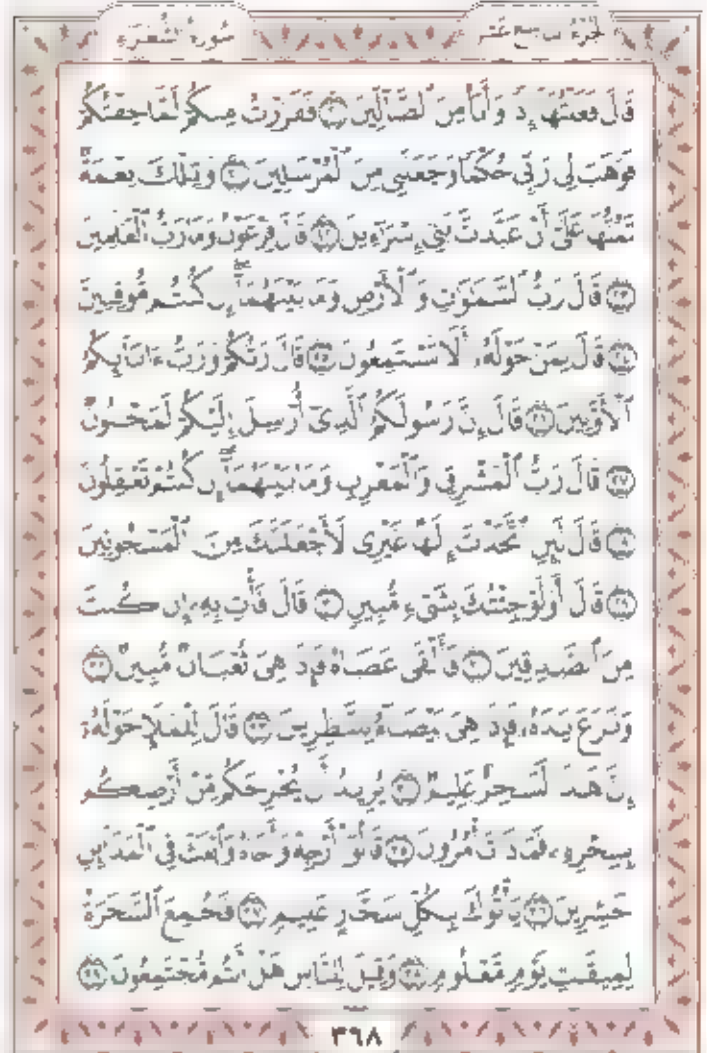 سُورَةُ الشُّعَرَاءِ
الجُزْءُ التَّاسِعَ عَشَرَ
قَالَ فَعَلْتُهَا إِذًا وَأَنَا۠ مِنَ ٱلضَّآلِّينَ ۝٢٠ فَفَرَرْتُ مِنكُمْ لَمَّا خِفْتُكُمْ
فَوَهَبَ لِى رَبِّى حُكْمًا وَجَعَلَنِى مِنَ ٱلْمُرْسَلِينَ ۝٢١ وَتِلْكَ نِعْمَةٌ
تَمُنُّهَا عَلَىَّ أَنْ عَبَّدتَّ بَنِىٓ إِسْرَٰٓءِيلَ ۝٢٢ قَالَ فِرْعَوْنُ وَمَا رَبُّ ٱلْعَٰلَمِينَ
۝٢٣ قَالَ رَبُّ ٱلسَّمَٰوَٰتِ وَٱلْأَرْضِ وَمَا بَيْنَهُمَآ إِن كُنتُم مُّوقِنِينَ
۝٢٤ قَالَ لِمَنْ حَوْلَهُۥٓ أَلَا تَسْتَمِعُونَ ۝٢٥ قَالَ رَبُّكُمْ وَرَبُّ ءَابَآئِكُمُ
ٱلْأَوَّلِينَ ۝٢٦ قَالَ إِنَّ رَسُولَكُمُ ٱلَّذِىٓ أُرْسِلَ إِلَيْكُمْ لَمَجْنُونٌ
۝٢٧ قَالَ رَبُّ ٱلْمَشْرِقِ وَٱلْمَغْرِبِ وَمَا بَيْنَهُمَآ إِن كُنتُمْ تَعْقِلُونَ
۝٢٨ قَالَ لَئِنِ ٱتَّخَذْتَ إِلَٰهًا غَيْرِى لَأَجْعَلَنَّكَ مِنَ ٱلْمَسْجُونِينَ
۝٢٩ قَالَ أَوَلَوْ جِئْتُكَ بِشَىْءٍ مُّبِينٍ ۝٣٠ قَالَ فَأْتِ بِهِۦٓ إِن كُنتَ
مِنَ ٱلصَّٰدِقِينَ ۝٣١ فَأَلْقَىٰ عَصَاهُ فَإِذَا هِىَ ثُعْبَانٌ مُّبِينٌ ۝٣٢
وَنَزَعَ يَدَهُۥ فَإِذَا هِىَ بَيْضَآءُ لِلنَّٰظِرِينَ ۝٣٣ قَالَ لِلْمَلَإِ حَوْلَهُۥٓ
إِنَّ هَٰذَا لَسَٰحِرٌ عَلِيمٌ ۝٣٤ يُرِيدُ أَن يُخْرِجَكُم مِّنْ أَرْضِكُم
بِسِحْرِهِۦ فَمَاذَا تَأْمُرُونَ ۝٣٥ قَالُوٓا۟ أَرْجِهْ وَأَخَاهُ وَٱبْعَثْ فِى ٱلْمَدَآئِنِ
حَٰشِرِينَ ۝٣٦ يَأْتُوكَ بِكُلِّ سَحَّارٍ عَلِيمٍ ۝٣٧ فَجُمِعَ ٱلسَّحَرَةُ
لِمِيقَٰتِ يَوْمٍ مَّعْلُومٍ ۝٣٨ وَقِيلَ لِلنَّاسِ هَلْ أَنتُم مُّجْتَمِعُونَ ۝٣٩
٣٦٨